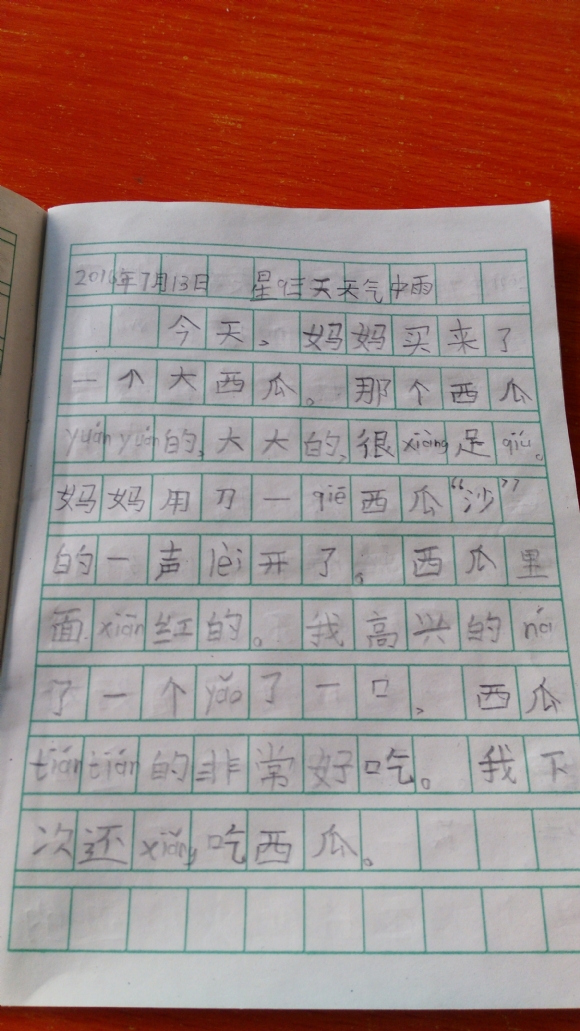 2016年7月13日 星qī三天天气中雨
今天、妈妈买来了
一个大西瓜。那个西瓜
yuán yuán的,大大的,很xiàng足qiú。
妈妈用刀一qiē西瓜“沙”
的一声lèi开了。西瓜里
面xiān红的。我高兴的ná
了一个yǎo了一口、西瓜
tián tián的非常好吃。我下
次还xiǎng吃西瓜。